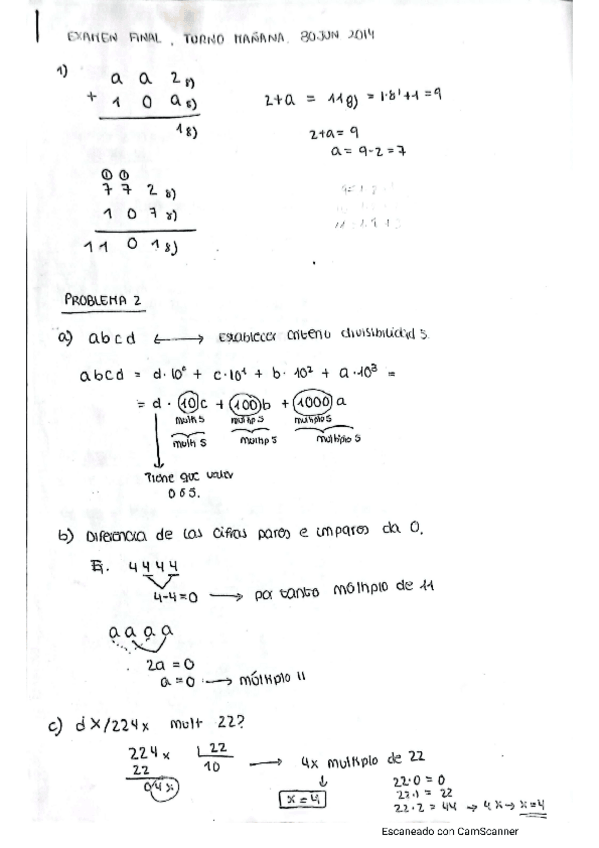 EXAMEN FINAL, TURNO MAÑANA. 30 JUN 2014
1)
a a 2 8)
+ 1 0 a 8)
1 8)
2+a = 11 8) = 1·8¹+1 = 9
2+a = 9
a = 9-2 = 7
① ①
7 7 2 8)
1 0 7 8)
1 1 0 1 8)
PROBLEMA 2
a) abcd ⟷ Establecer criterio divisibilidad 5.
abcd = d·10⁰ + c·10¹ + b·10² + a·10³ =
= d · 10c + 100b + 1000a
mult 5 multip 5 multiplo 5
mult 5 multip 5 multiplo 5
Tiene que valer
0 ó 5.
b) Diferencia de las cifras pares e impares da 0.
Ej. 4444
4-4=0 → por tanto múltiplo de 11
a a a a
2a = 0
a = 0 → múltiplo 11
c) d X/224x mult 22?
224x 22
22 10
04x
→ 4x multiplo de 22
↓
x = 4
22·0 = 0
22·1 = 22
22·2 = 44 → 4x → x=4
Escaneado con CamScanner